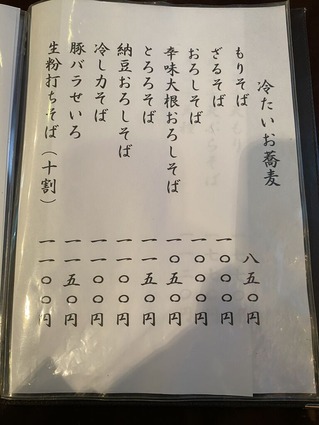 冷たいお蕎麦
もりそば 八五〇円
ざるそば 一〇〇〇円
おろしそば 一〇〇〇円
辛味大根おろしそば 一〇五〇円
とろろそば 一一五〇円
納豆おろしそば 一一〇〇円
冷し力そば 一一〇〇円
豚バラせいろ 一一五〇円
生粉打ちそば（十割） 一一〇〇円